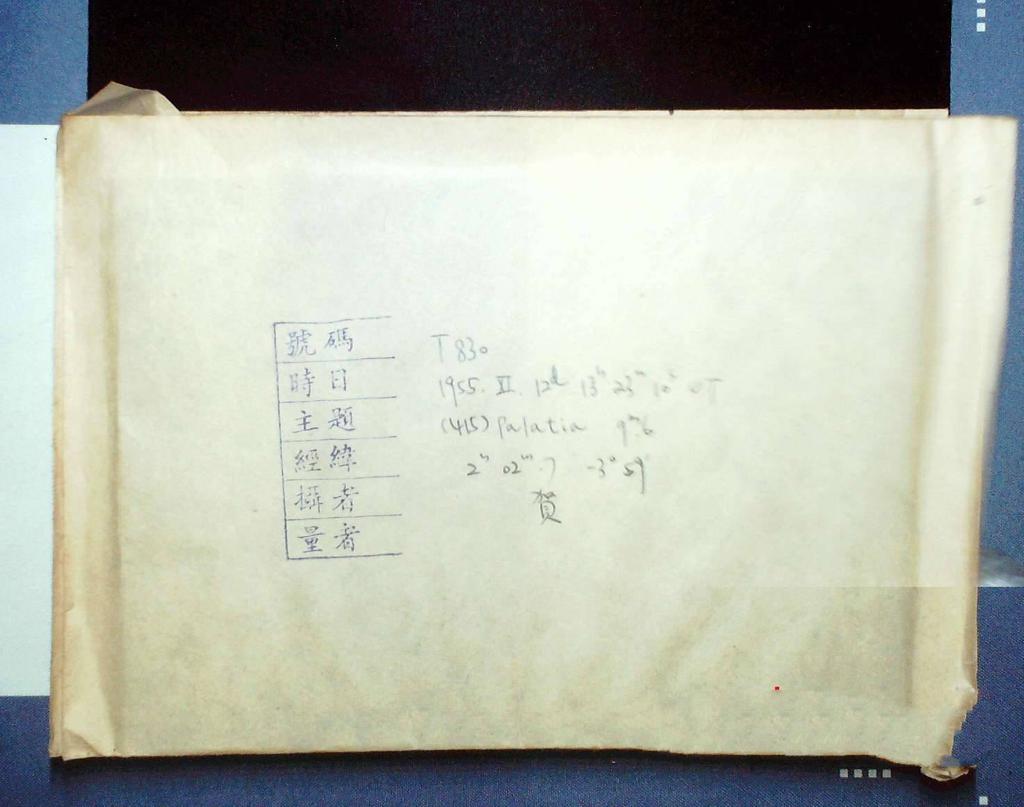 號碼 T 830
時日 1955. II. 12ᵈ 13ʰ 23ᵐ 10ˢ UT
主題 (415) Palatia 9ᵐ.6
經緯 2ʰ 02ᵐ.7 -3° 59'
攝者 賀
量者